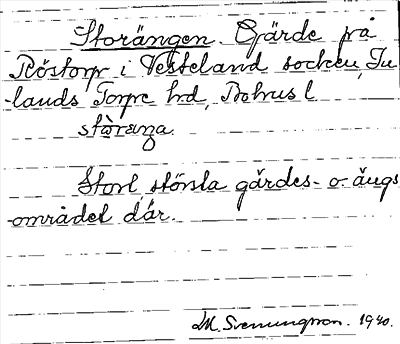 Storängen. Gärde på
Röstorp i Vesteland socken, In
-lands Torpe hd, Bohus l.
störæŋa.
Stort största gärdes- o. ängs
-området där.
M. Svenungsson. 1940.